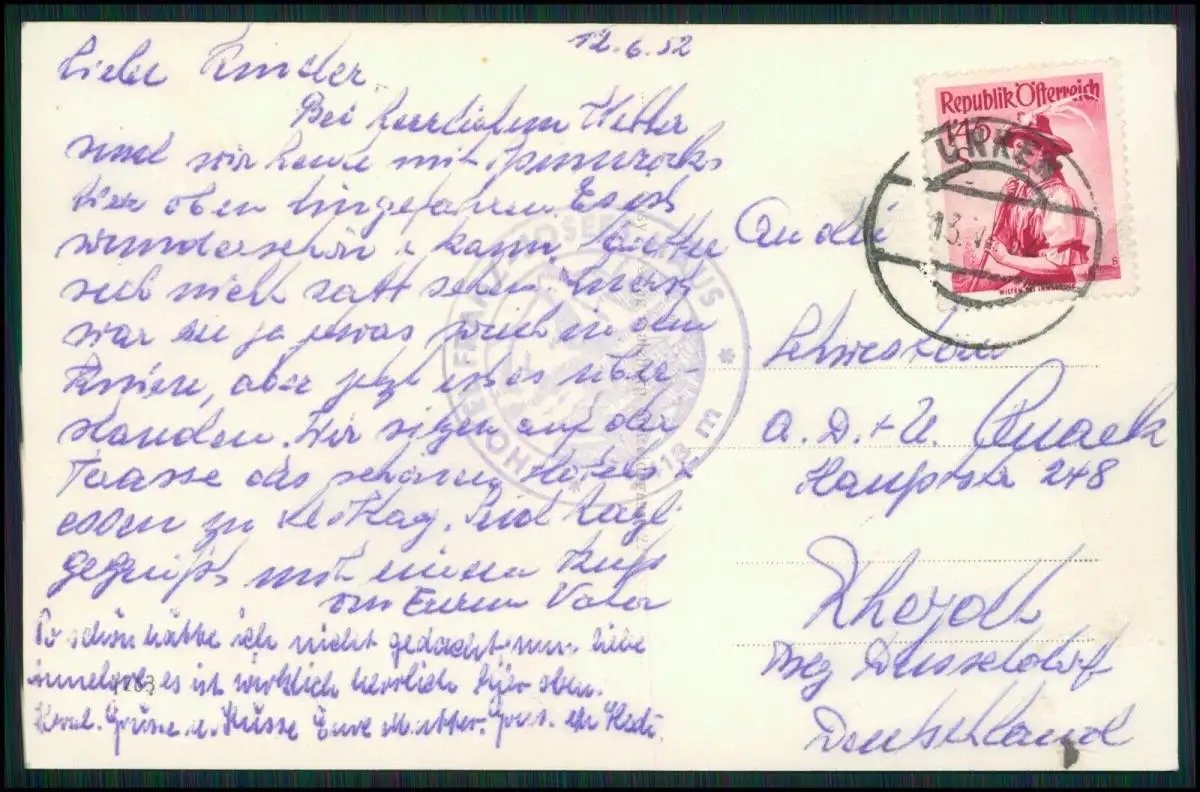 12.6.52
Liebe Kinder.
Bei herrlichem Wetter
sind wir heute mit
hier oben hingefahren. Es ist
wunderschön u kann
sich nicht satt sehen. Zuerst
war es ja etwas weich in den
Kniee, aber jetzt ist es über-
standen. Wir sitzen auf der
Terasse des schönen Hotels u
essen zu Mittag. Seid herzl.
gegrüßt mit einem Kuß
von Eurem Vater
So schön hätte ich nicht gedacht, nun liebe
es ist wirklich herrlich hier oben.
Herzl. Grüsse u. Küsse Eure Mutter.
1283
FRANZ JOSEFS HAUS
* HOTEL *
m
Republik Österreich
1'45
S
WILTEN BEI INNSBRUCK
13. VI.
An die
Schwestern
A. D. + U. Quack
Hauptstr 248
Rheydt
Bez Düsseldorf
Deutschland